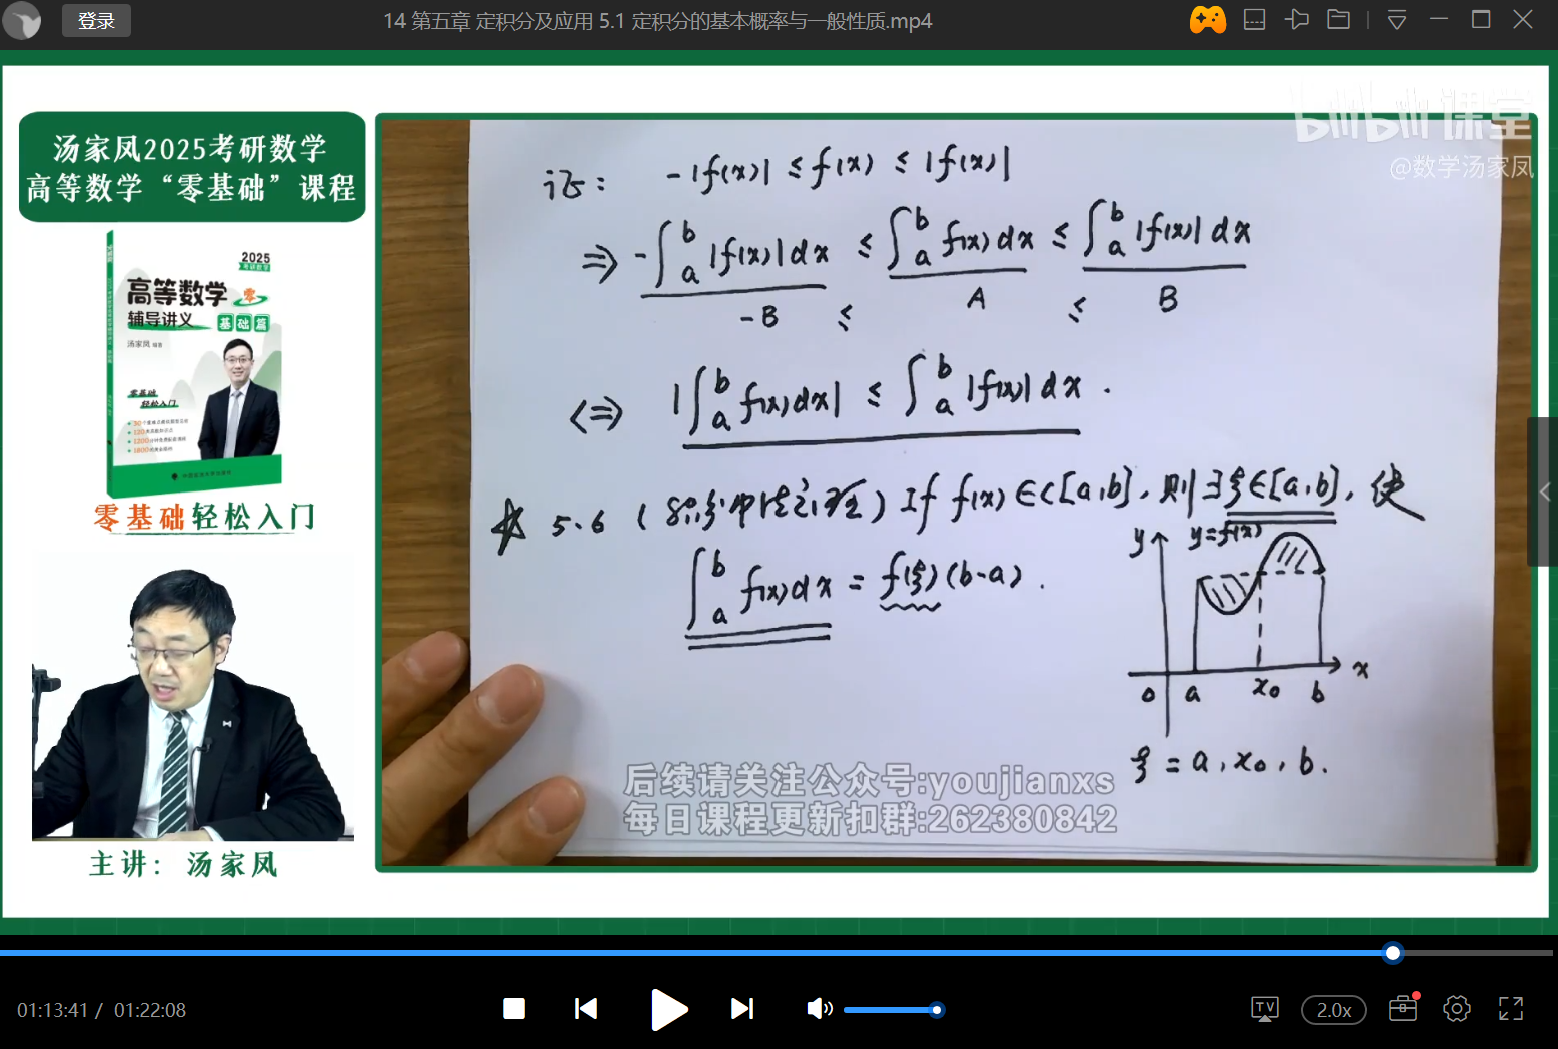 登录
14 第五章 定积分及应用 5.1 定积分的基本概率与一般性质.mp4
汤家凤2025考研数学
高等数学“零基础”课程
2025
考研数学
高等数学 零
辅导讲义 基础篇
汤家凤 编著
零基础
轻松入门
零基础轻松入门
主讲：汤家凤
bilibili 课堂
@数学汤家凤
证: -|f(x)| ≤ f(x) ≤ |f(x)|
⇒ -∫_a^b |f(x)|dx ≤ ∫_a^b f(x)dx ≤ ∫_a^b |f(x)|dx
-B ≤ A ≤ B
⟺ |∫_a^b f(x)dx| ≤ ∫_a^b |f(x)|dx.
5.6 (积分中值定理) If f(x)∈C[a,b], 则∃ξ∈[a,b], 使
∫_a^b f(x)dx = f(ξ)(b-a).
y y=f(x)
x
0 a x₀ b
ξ = a, x₀, b.
后续请关注公众号:youjianxs
每日课程更新扣群:262380842
01:13:41 / 01:22:08
TV
2.0x